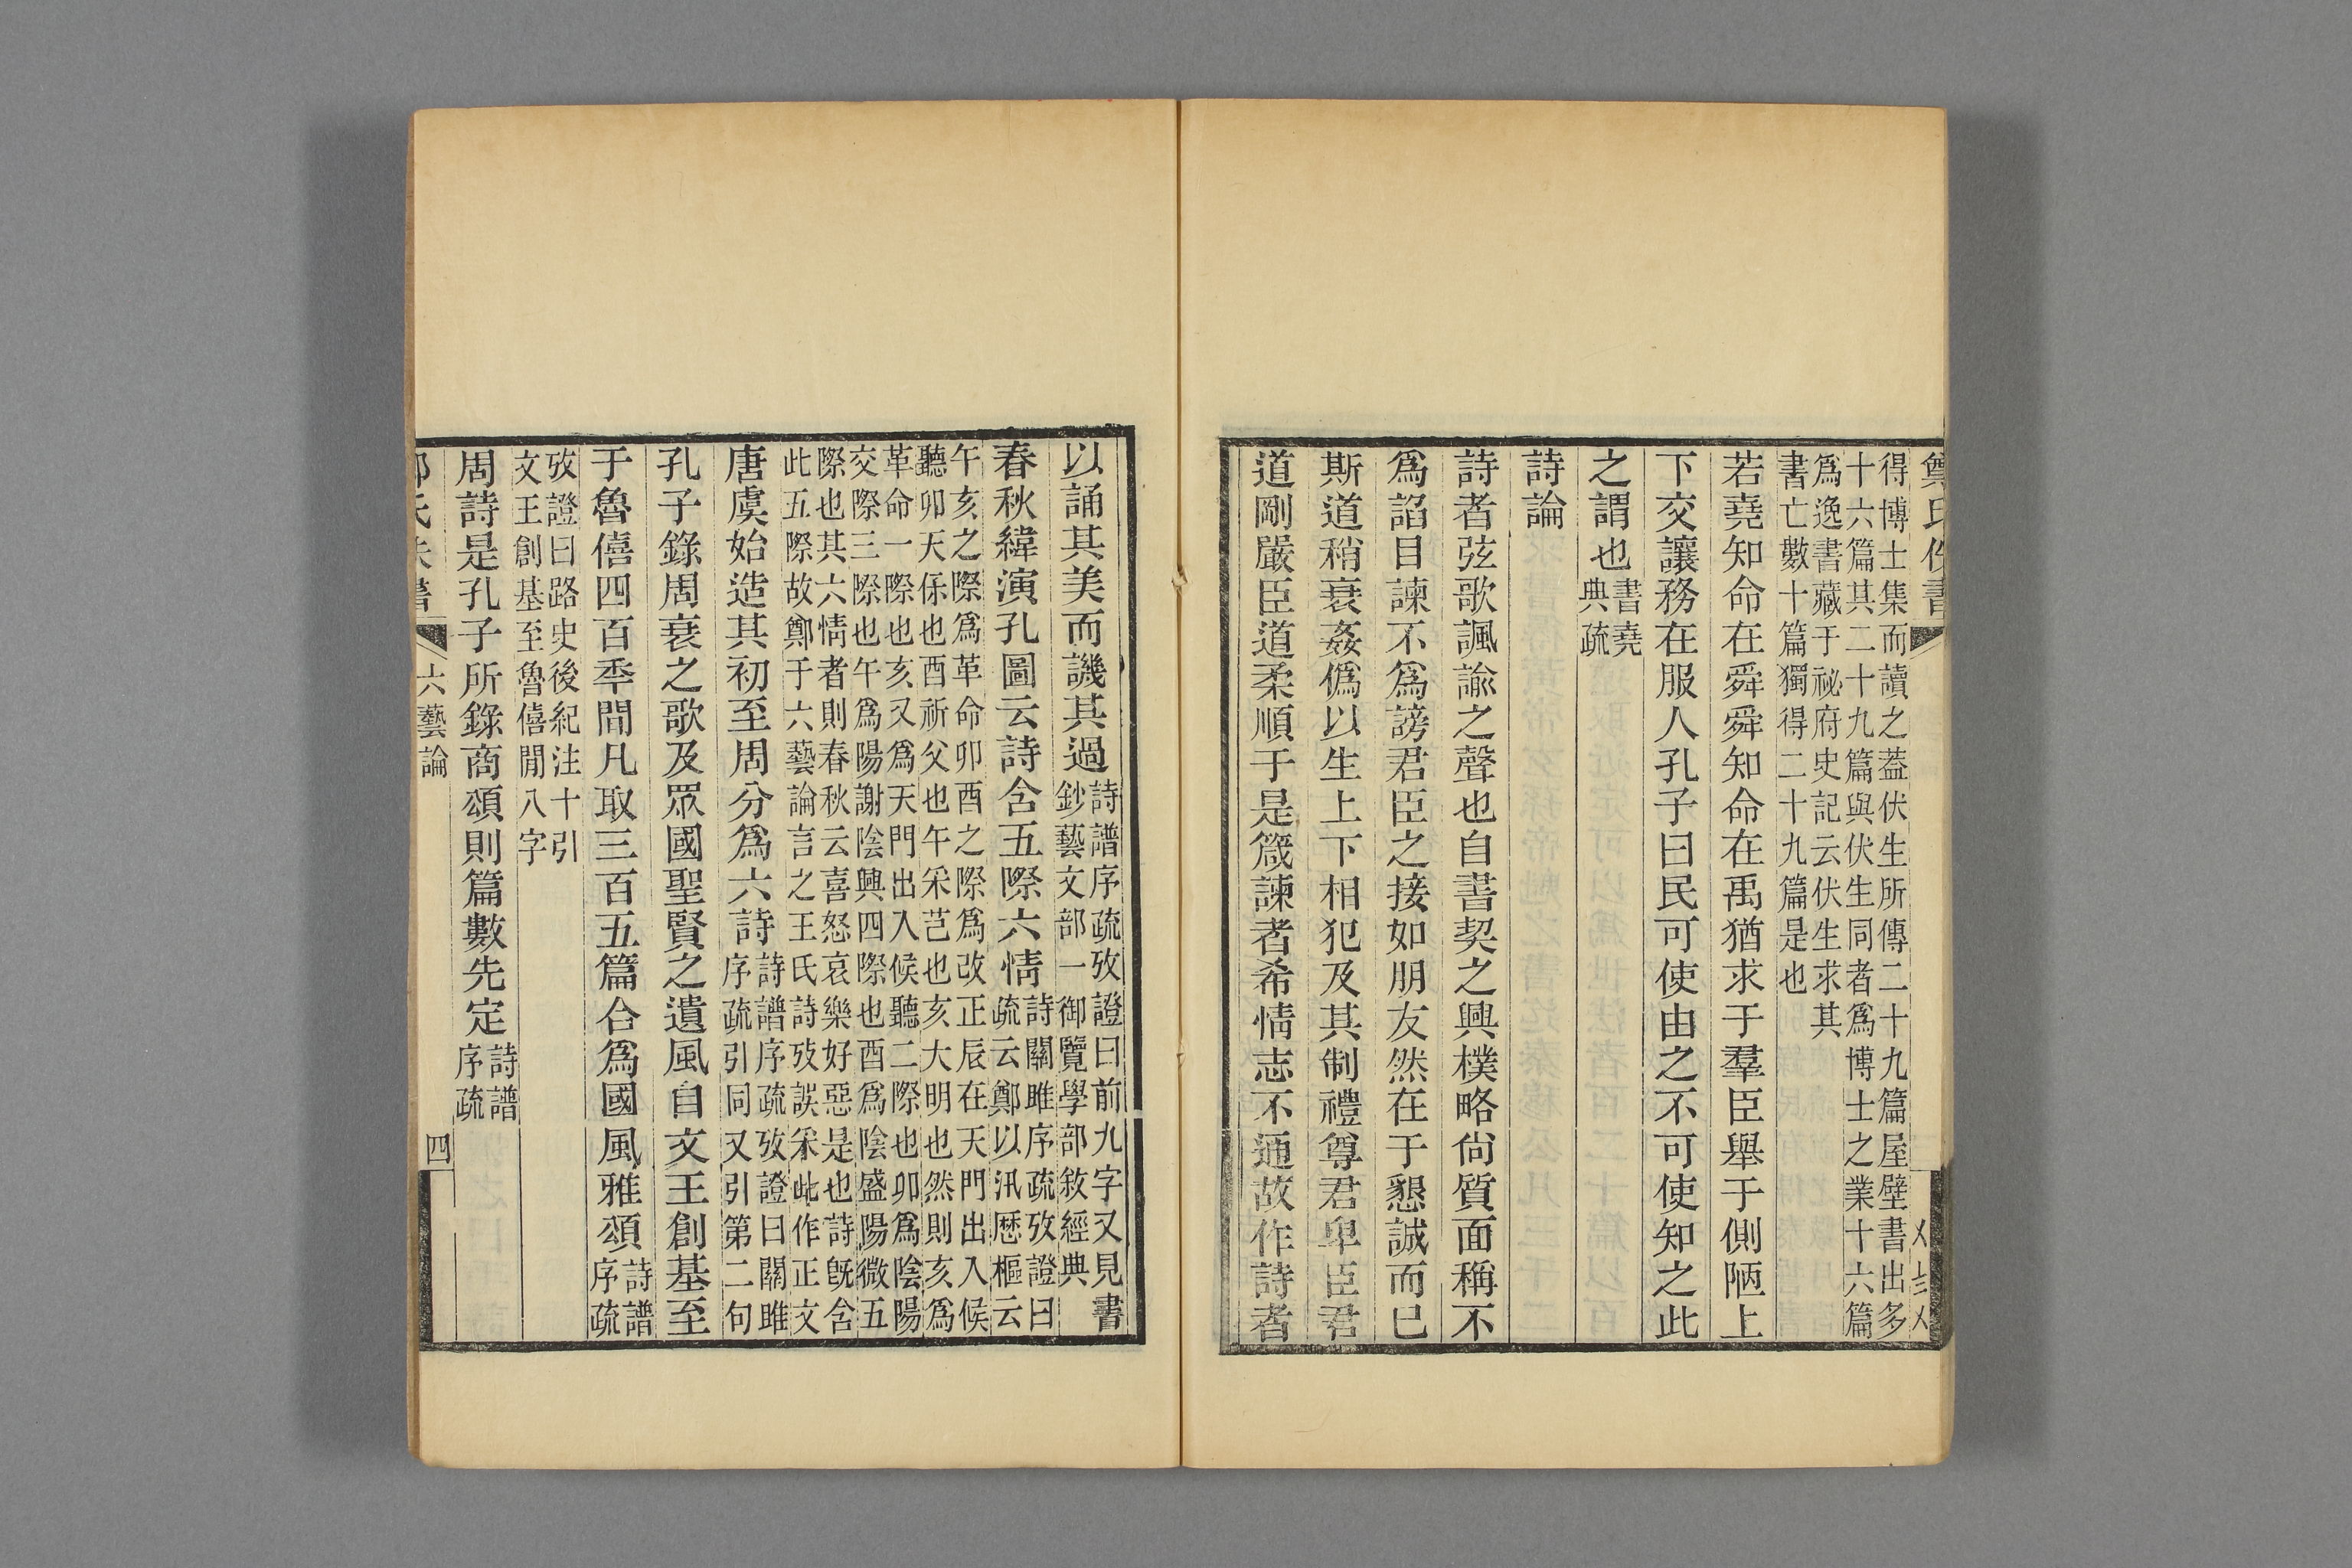 鄭氏佚書
得博士集而讀之蓋伏生所傳二十九篇屋壁書出多
十六篇其二十九篇與伏生同者爲博士之業十六篇
爲逸書藏于祕府史記云伏生求其
書亡數十篇獨得二十九篇是也
若堯知命在舜舜知命在禹猶求于羣臣舉于側陋上
下交讓務在服人孔子曰民可使由之不可使知之此
之謂也書堯
典疏
詩論
詩者弦歌諷諭之聲也自書契之興樸略尚質面稱不
爲諂目諫不爲謗君臣之接如朋友然在于懇誠而已
斯道稍衰姦僞以生上下相犯及其制禮尊君卑臣君
道剛嚴臣道柔順于是箴諫者希情志不通故作詩者
以誦其美而譏其過詩譜序疏攷證曰前九字又見書
鈔藝文部一御覽學部敘經典
春秋緯演孔圖云詩含五際六情詩關雎序疏攷證曰
疏云鄭以汛歷樞云
午亥之際爲革命卯酉之際爲改正辰在天門出入候
聽卯天保也酉祈父也午采芑也亥大明也然則亥爲
革命一際也亥又爲天門出入候聽二際也卯爲陰陽
交際三際也午爲陽謝陰興四際也酉爲陰盛陽微五
際也其六情者則春秋云喜怒哀樂好惡是也詩旣含
此五際故鄭于六藝論言之王氏詩攷誤采此作正文
唐虞始造其初至周分爲六詩詩譜序疏攷證曰關雎
序疏引同又引第二句
孔子錄周衰之歌及眾國聖賢之遺風自文王創基至
于魯僖四百秊間凡取三百五篇合爲國風雅頌詩譜
序疏
攷證曰路史後紀注十引
文王創基至魯僖閒八字
周詩是孔子所錄商頌則篇數先定詩譜
序疏
六藝論
四